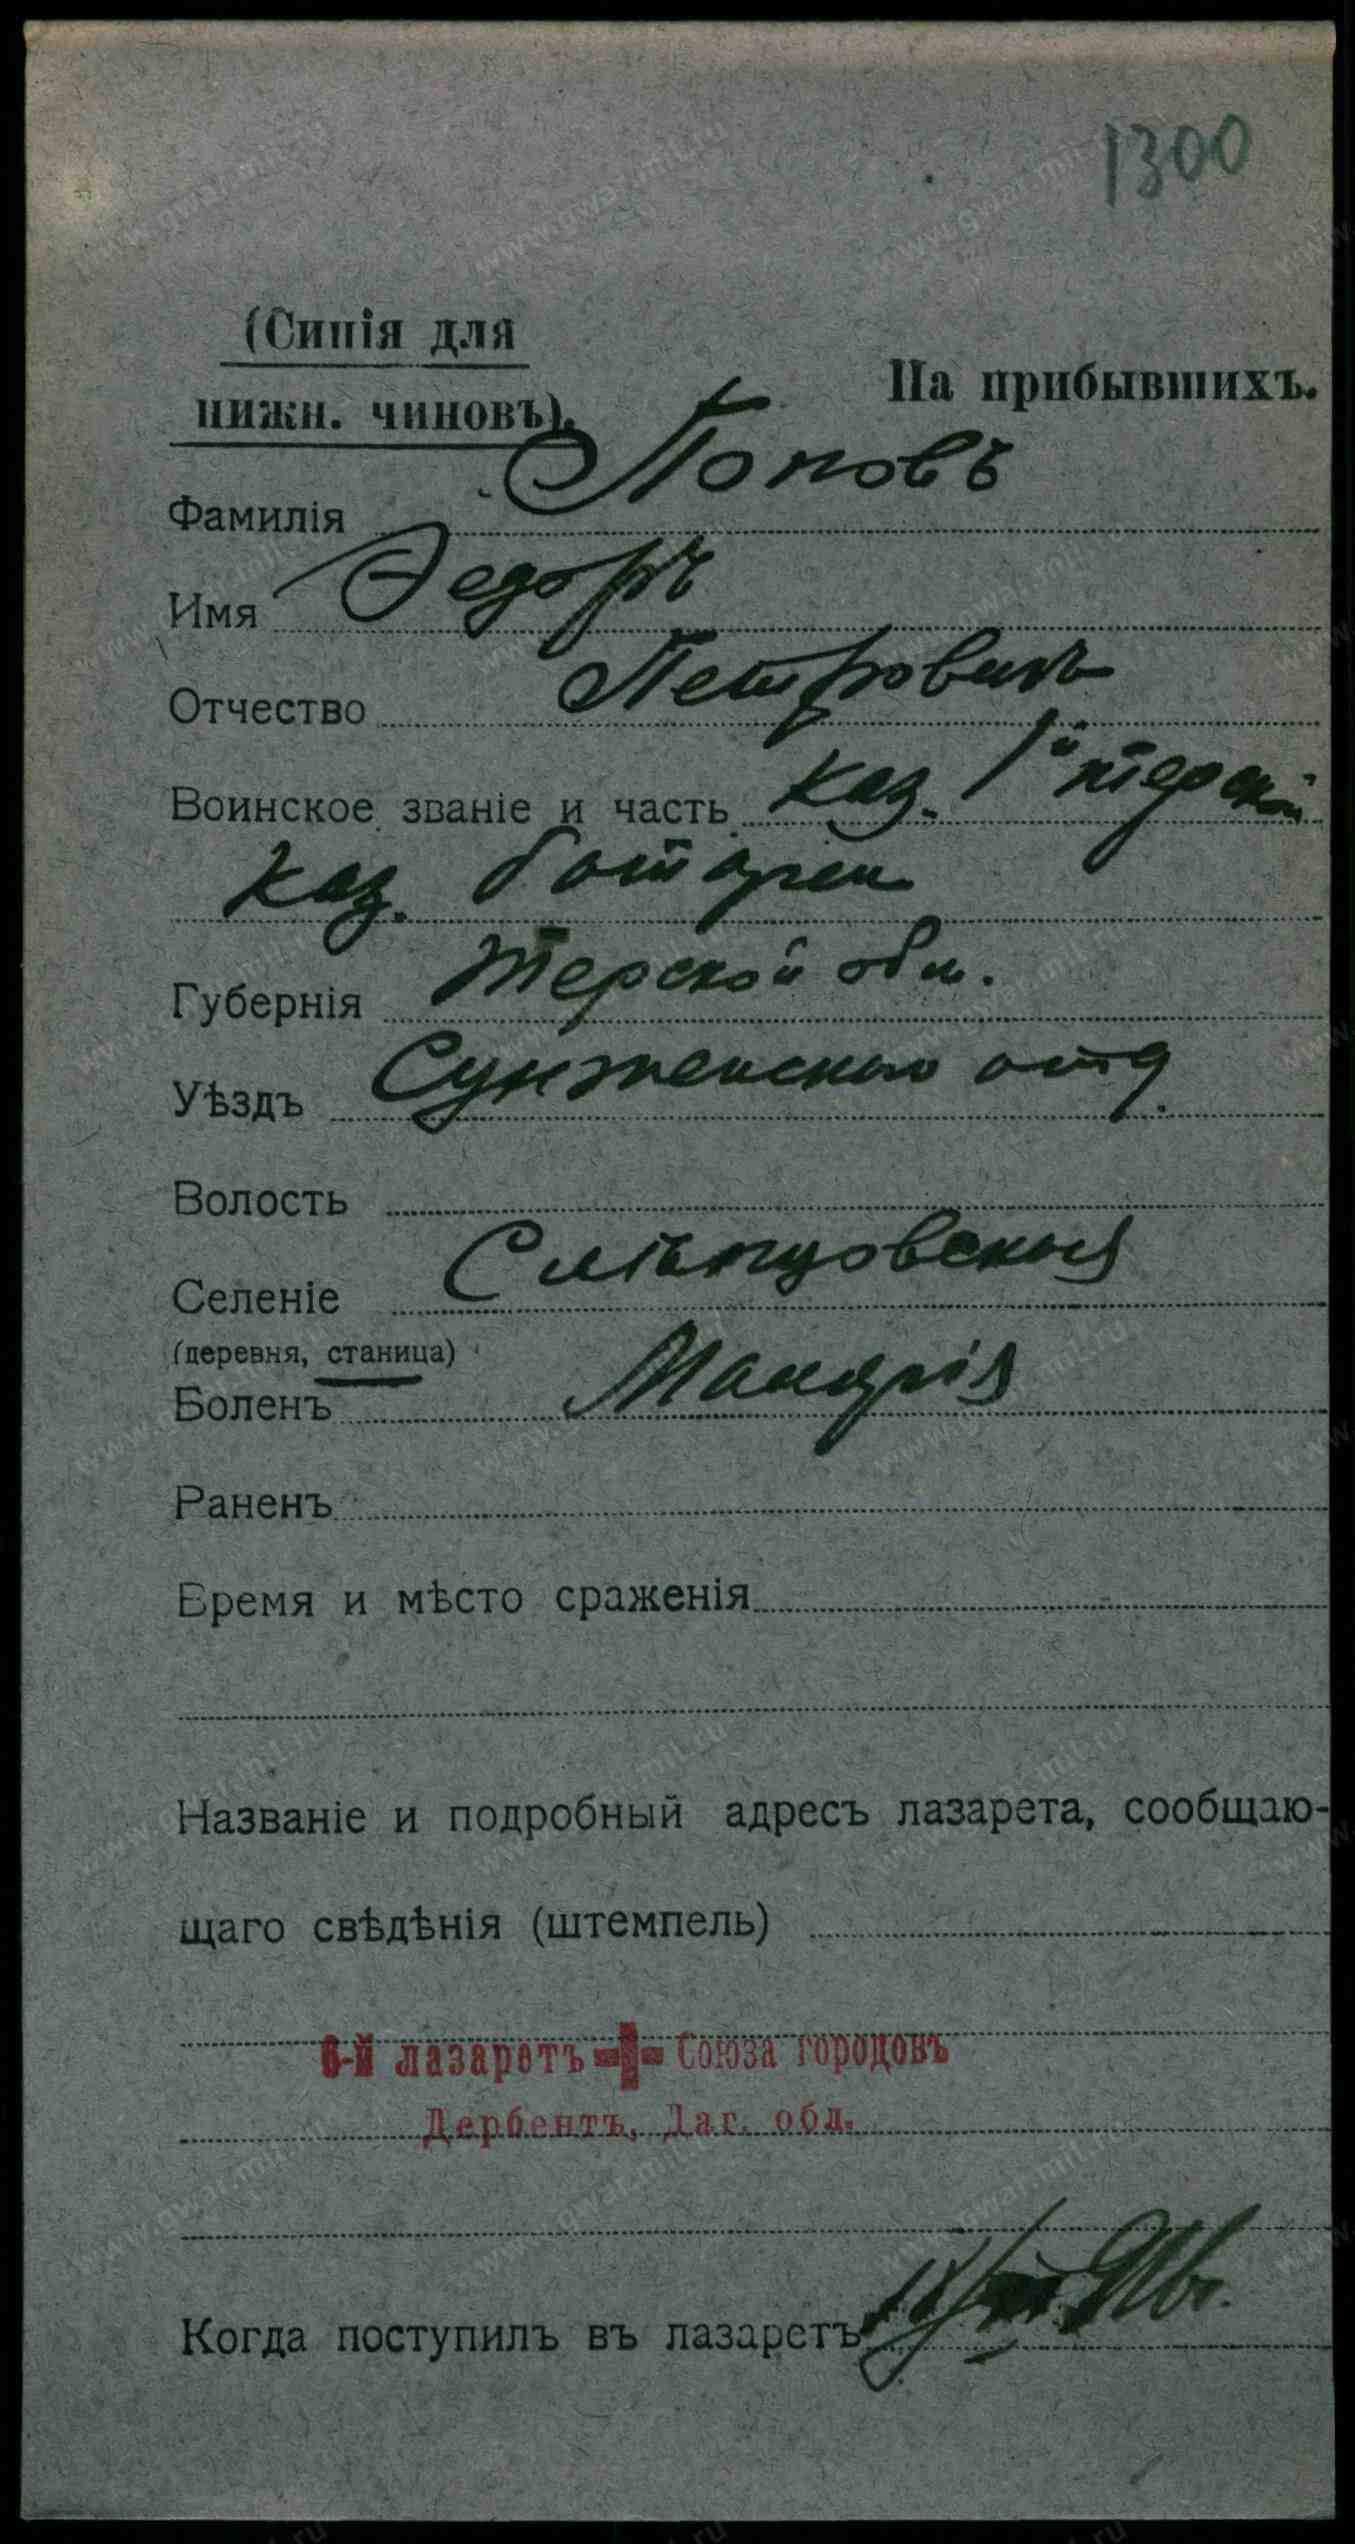 1300
(Синія для
нижн. чиновъ).
На прибывшихъ.
Фамилія Поповъ
Имя Федоръ
Отчество Петровичъ
Воинское званіе и часть каз. 1й терской
каз. батареи
Губернія Терской обл.
Уѣздъ Сунженскаго отд.
Волость
Селеніе Слѣпцовская
(деревня, станица)
Боленъ Малярія
Раненъ
Время и мѣсто сраженія
Названіе и подробный адресъ лазарета, сообщаю-
щаго свѣдѣнія (штемпель)
6-й лазаретъ Союза городовъ
Дербентъ, Даг. обл.
Когда поступилъ въ лазаретъ